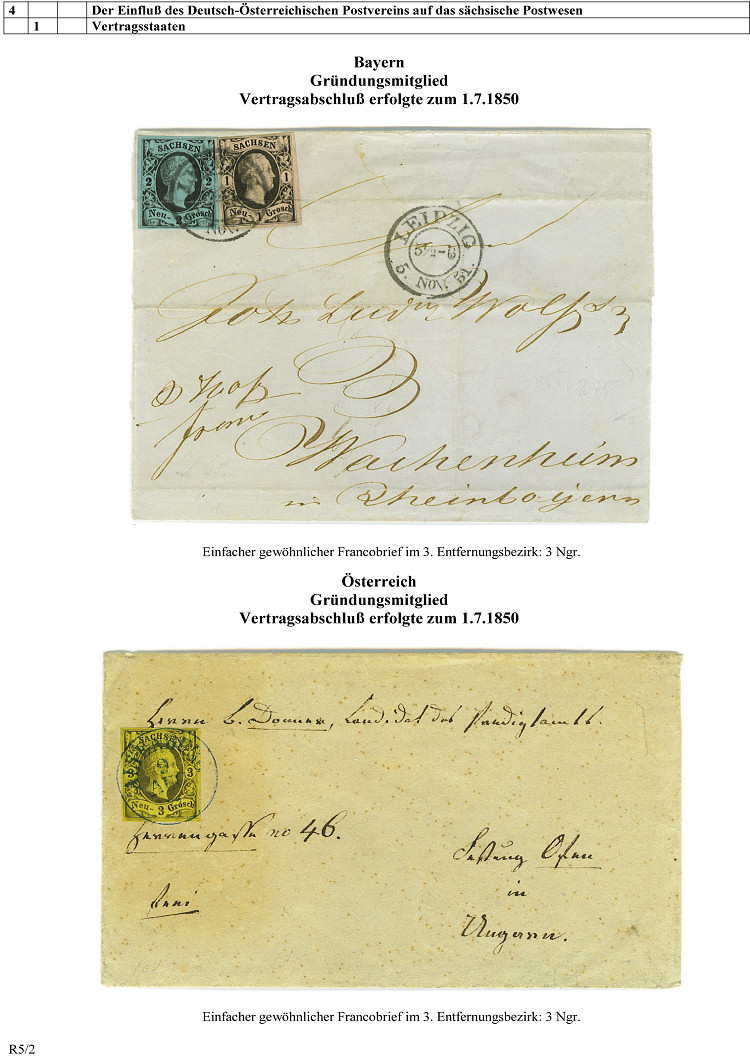 4 Der Einfluß des Deutsch-Österreichischen Postvereins auf das sächsische Postwesen
1 Vertragsstaaten
Bayern
Gründungsmitglied
Vertragsabschluß erfolgte zum 1.7.1850
SACHSEN SACHSEN
2 2 1 1
Neu- 2 Grosch Neu- 1 Grosch
NOV.
LEIPZIG
5. NOV. 51.
Joh Ludw Wolf
franco
Wachenheim
in Rheinbayern
Einfacher gewöhnlicher Francobrief im 3. Entfernungsbezirk: 3 Ngr.
Österreich
Gründungsmitglied
Vertragsabschluß erfolgte zum 1.7.1850
Herrn C. Donner, Candidat des Predigtamts.
SACHSEN
3 3
Neu- 3 Grosch
Herrengasse no 46.
Festung Ofen
frei
in
Ungarn.
Einfacher gewöhnlicher Francobrief im 3. Entfernungsbezirk: 3 Ngr.
R5/2